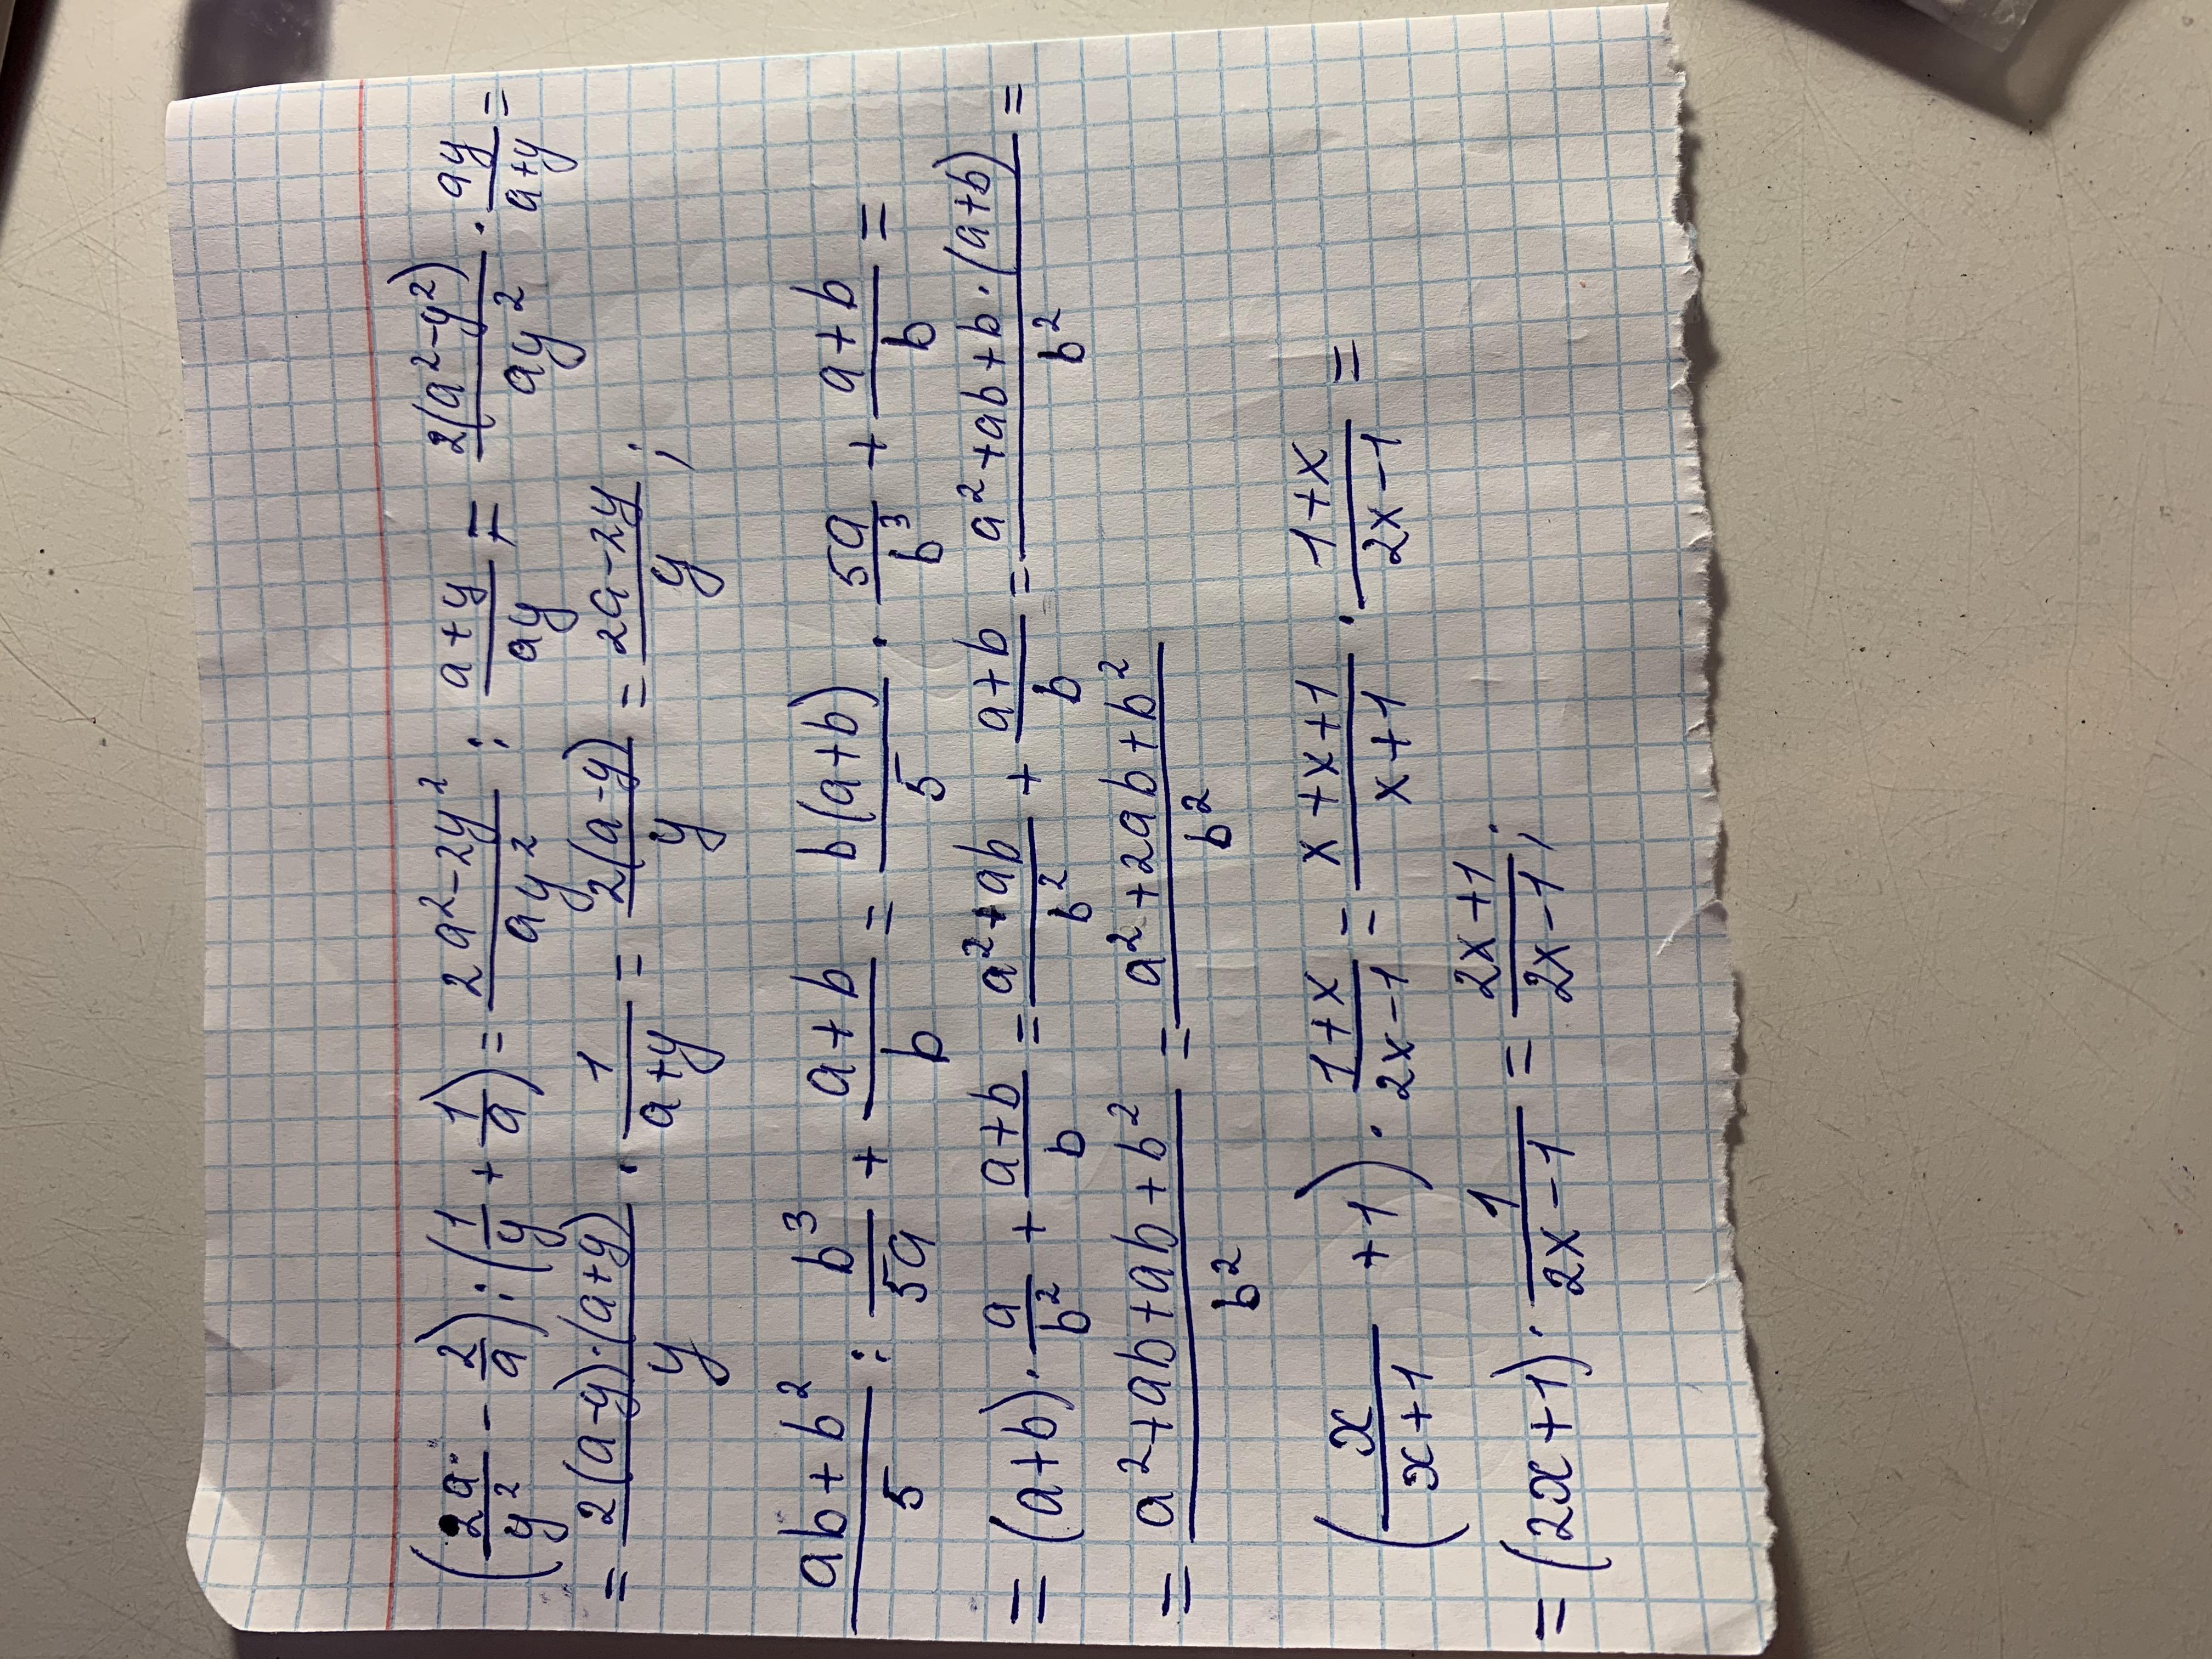 (2a/y² - 2/a) : (1/y + 1/a) = (2a²-2y²)/(ay²) : (a+y)/(ay) = 2(a²-y²)/(ay²) · ay/(a+y) =
= 2(a-y)·(a+y)/y · 1/(a+y) = 2(a-y)/y = (2a-2y)/y ;
(ab+b²)/5 : b³/(5a) + (a+b)/b = b(a+b)/5 · 5a/b³ + (a+b)/b =
= (a+b) · a/b² + (a+b)/b = (a²+ab)/b² + (a+b)/b = (a²+ab+b·(a+b))/b² =
= (a²+ab+ab+b²)/b² = (a²+2ab+b²)/b²
(x/(x+1) +1) · (1+x)/(2x-1) = (x+x+1)/(x+1) · (1+x)/(2x-1) =
= (2x+1) · 1/(2x-1) = (2x+1)/(2x-1) ;